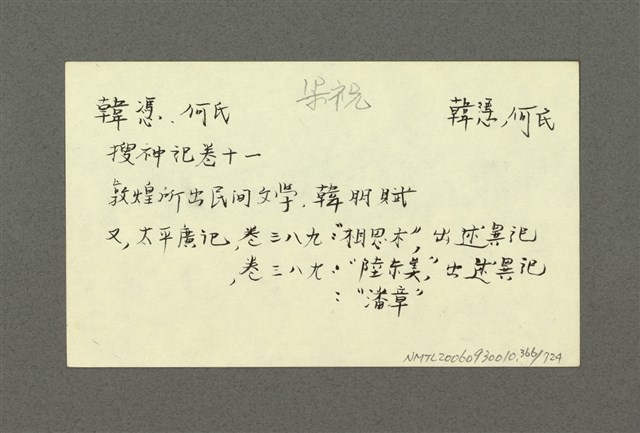 梁祝
韓憑、何氏 韓憑,何氏
搜神記卷十一
敦煌所出民間文學.韓朋賦
又,太平廣記,卷三八九:"相思木",出述異記
,卷三八九:"陸東美",出述異記
:"潘章"
NMTL20060930010.366/724